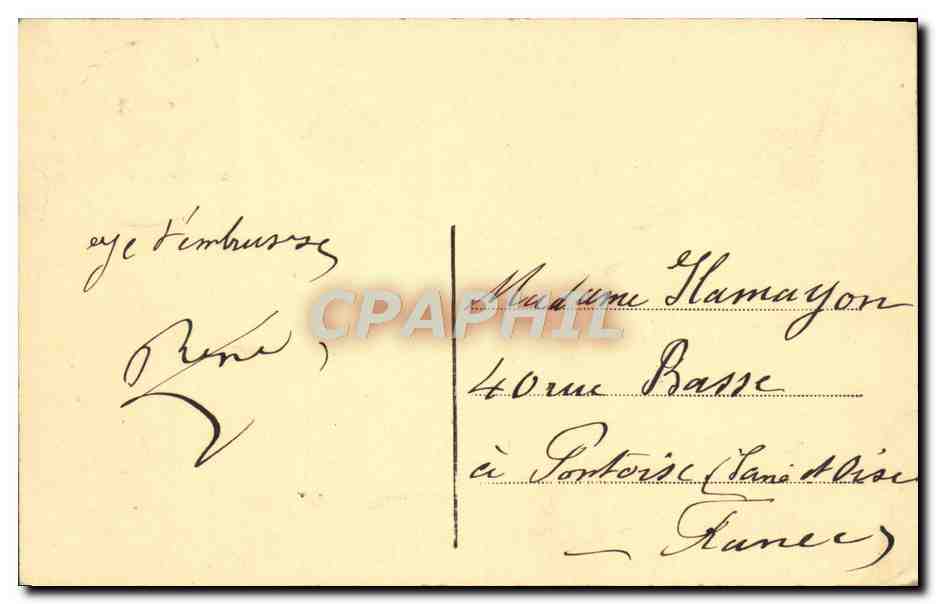 je t'embrasse
René
CPAPHIL
Madame Hamayon
40 rue Basse
à Pontoise (Seine et Oise
France